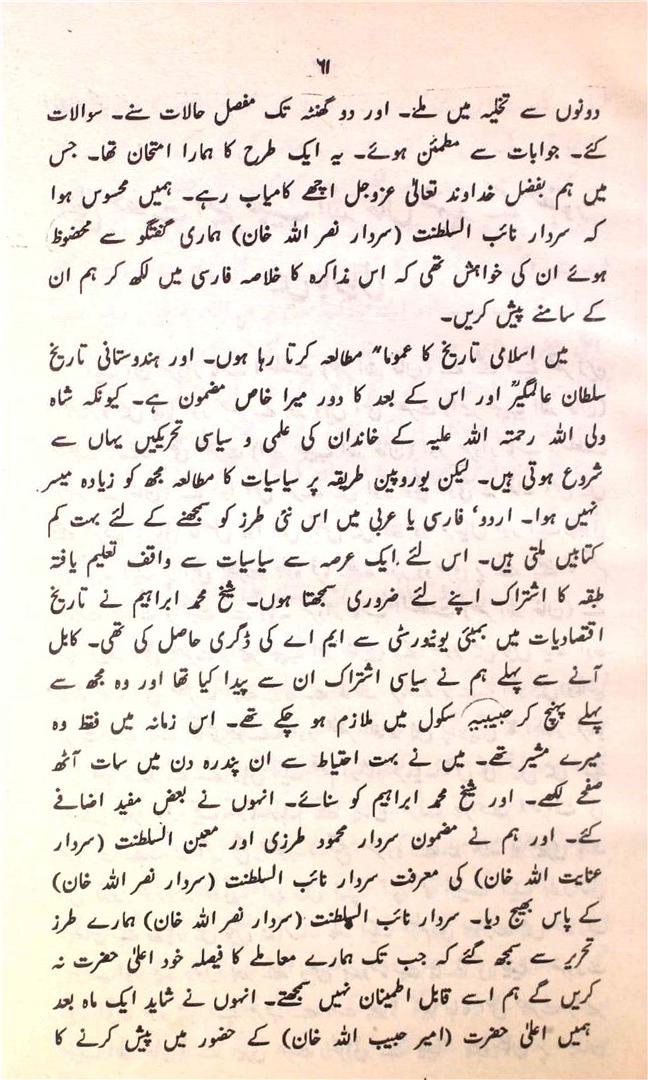 ٦١
دونوں سے تخلیہ میں ملے۔ اور دو گھنٹہ تک مفصل حالات سنے۔ سوالات
کئے۔ جوابات سے مطمئن ہوئے۔ یہ ایک طرح کا ہمارا امتحان تھا۔ جس
میں ہم بفضل خداوند تعالیٰ عزوجل اچھے کامیاب رہے۔ ہمیں محسوس ہوا
کہ سردار نائب السلطنت (سردار نصر اللہ خان) ہماری گفتگو سے محظوظ
ہوئے ان کی خواہش تھی کہ اس مذاکرہ کا خلاصہ فارسی میں لکھ کر ہم ان
کے سامنے پیش کریں۔
میں اسلامی تاریخ کا عموما" مطالعہ کرتا رہا ہوں۔ اور ہندوستانی تاریخ
سلطان عالمگیرؒ اور اس کے بعد کا دور میرا خاص مضمون ہے۔ کیونکہ شاہ
ولی اللہ رحمتہ اللہ علیہ کے خاندان کی علمی و سیاسی تحریکیں یہاں سے
شروع ہوتی ہیں۔ لیکن یوروپین طریقہ پر سیاسیات کا مطالعہ مجھ کو زیادہ میسر
نہیں ہوا۔ اردو، فارسی یا عربی میں اس نئی طرز کو سمجھنے کے لئے بہت کم
کتابیں ملتی ہیں۔ اس لئے ایک عرصہ سے سیاسیات سے واقف تعلیم یافتہ
طبقہ کا اشتراک اپنے لئے ضروری سمجھتا ہوں۔ شیخ محمد ابراہیم نے تاریخ
اقتصادیات میں بمبئی یونیورسٹی سے ایم اے کی ڈگری حاصل کی تھی۔ کابل
آنے سے پہلے ہم نے سیاسی اشتراک ان سے پیدا کیا تھا اور وہ مجھ سے
پہلے پہنچ کر حبیبیہ سکول میں ملازم ہو چکے تھے۔ اس زمانہ میں فقط وہ
میرے مشیر تھے۔ میں نے بہت احتیاط سے ان پندرہ دن میں سات آٹھ
صفحے لکھے۔ اور شیخ محمد ابراہیم کو سنائے۔ انہوں نے بعض مفید اضافے
کئے۔ اور ہم نے مضمون سردار محمود طرزی اور معین السلطنت (سردار
عنایت اللہ خان) کی معرفت سردار نائب السلطنت (سردار نصر اللہ خان)
کے پاس بھیج دیا۔ سردار نائب السلطنت (سردار نصر اللہ خان) ہمارے طرز
تحریر سے سمجھ گئے کہ جب تک ہمارے معاملے کا فیصلہ خود اعلیٰ حضرت نہ
کریں گے ہم اسے قابل اطمینان نہیں سمجھتے۔ انہوں نے شاید ایک ماہ بعد
ہمیں اعلیٰ حضرت (امیر حبیب اللہ خان) کے حضور میں پیش کرنے کا